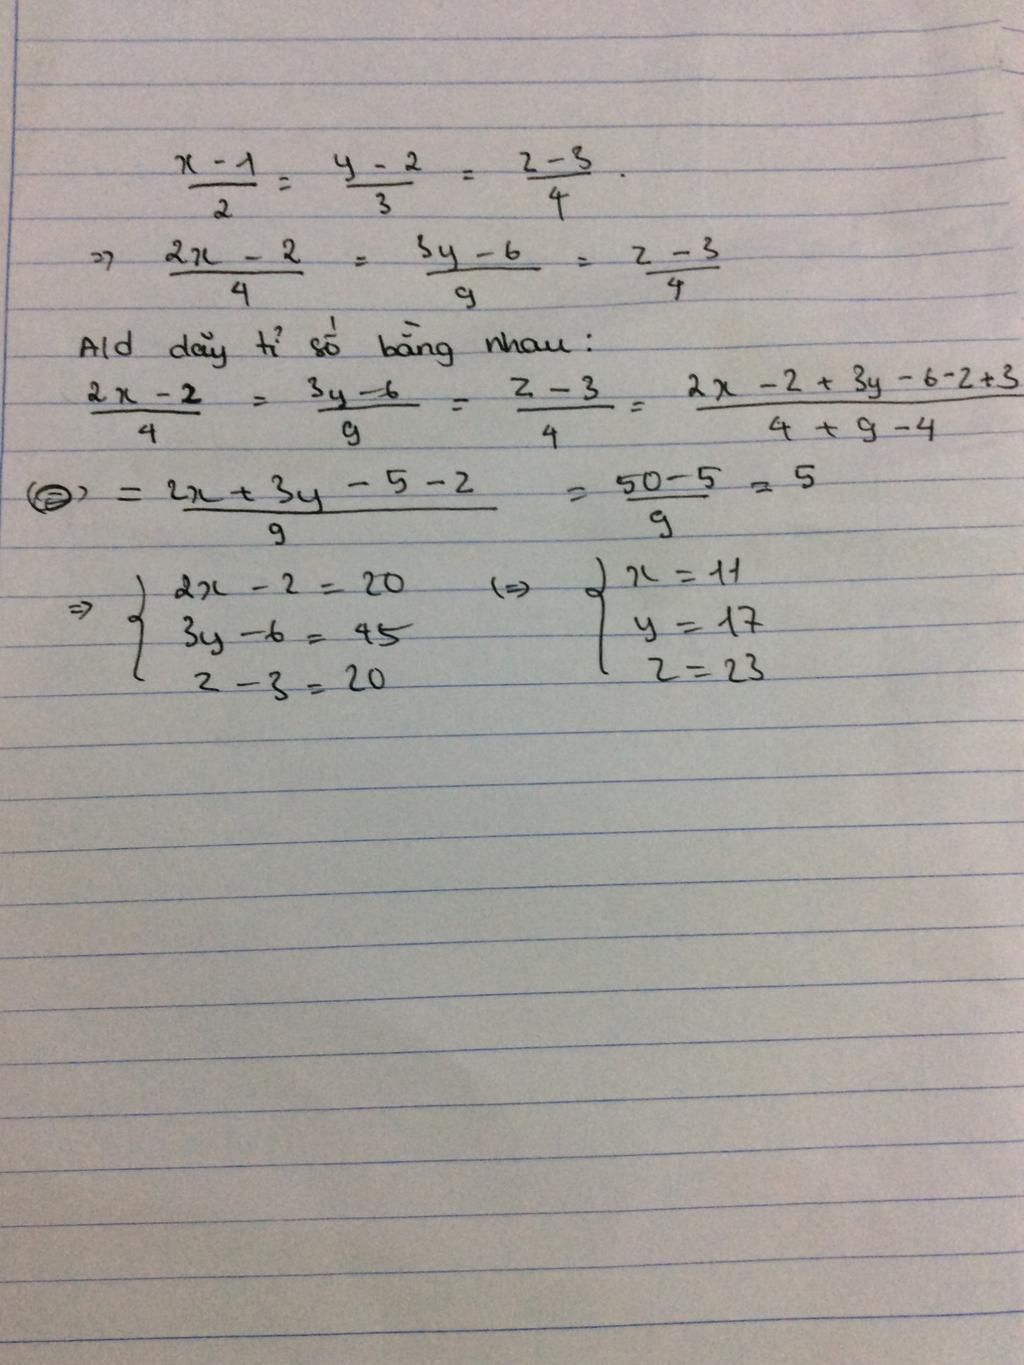 x - 1 / 2 = y - 2 / 3 = z - 3 / 4 .
=> 2x - 2 / 4 = 3y - 6 / 9 = z - 3 / 4
A/d dãy tỉ số bằng nhau :
2x - 2 / 4 = 3y - 6 / 9 = z - 3 / 4 = 2x - 2 + 3y - 6 - z + 3 / 4 + 9 - 4
= 2x + 3y - 5 - z / 9 = 50 - 5 / 9 = 5
=> { 2x - 2 = 20 <=> { x = 11
3y - 6 = 45 y = 17
z - 3 = 20 z = 23